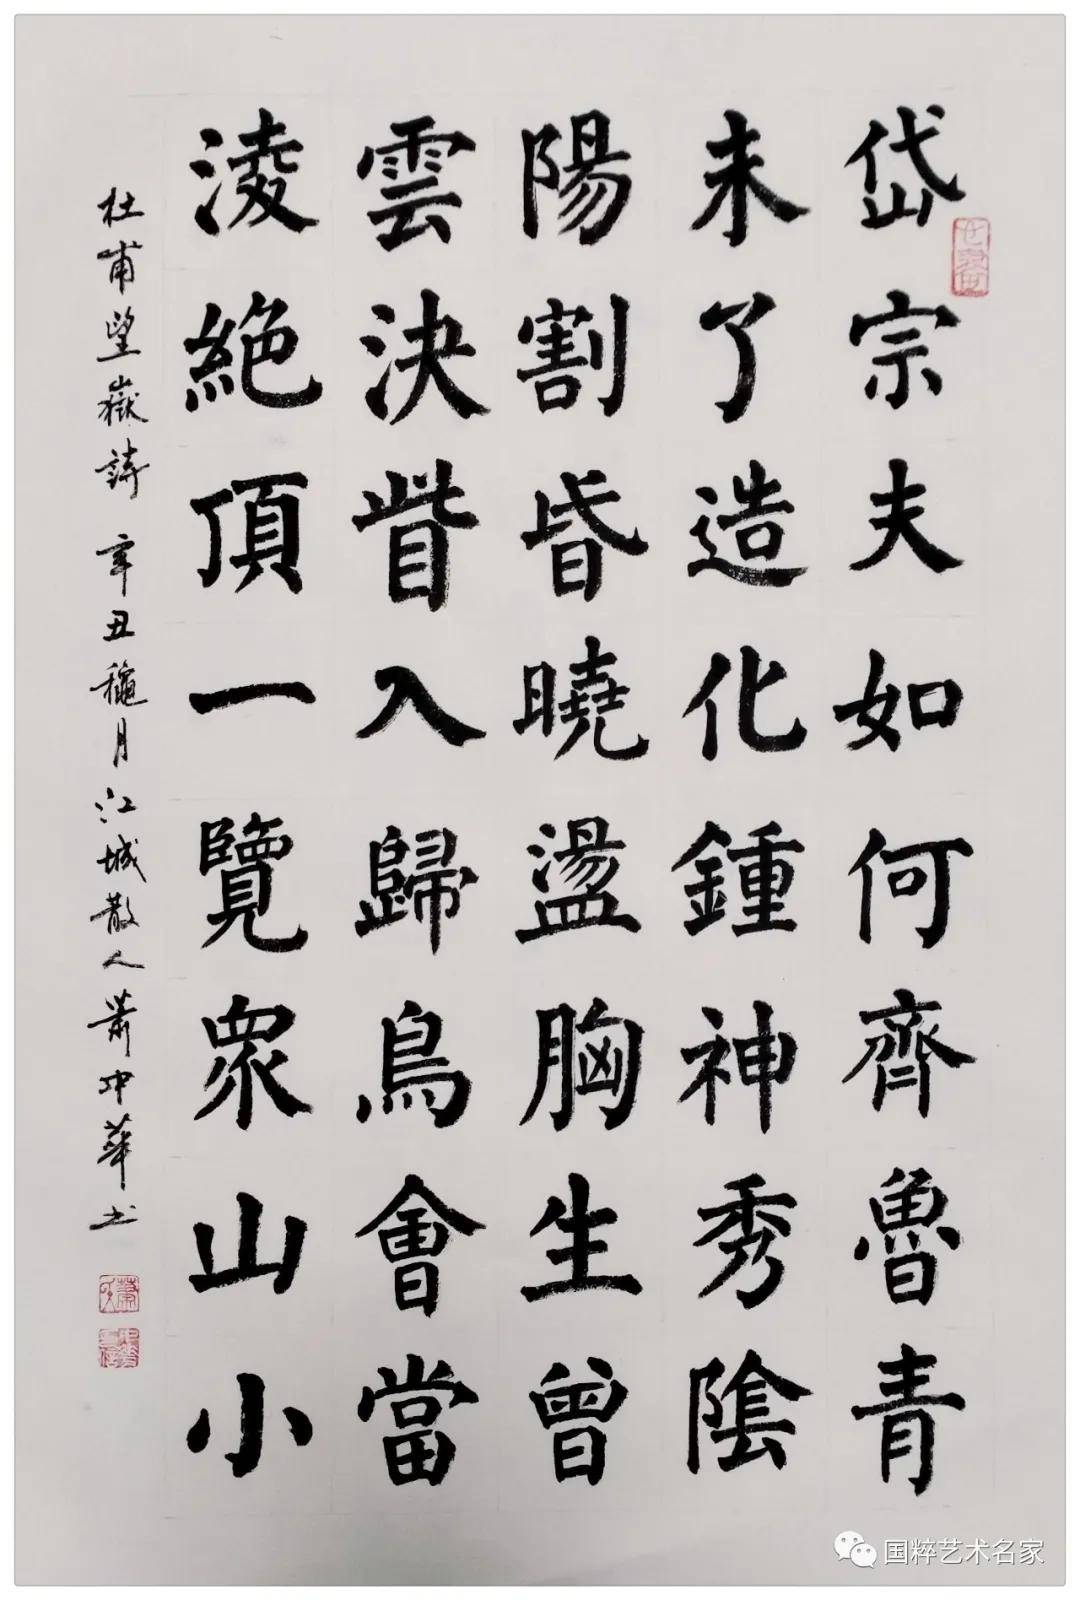 岱宗夫如何齊魯青
未了造化鍾神秀陰
陽割昏曉盪胸生曾
雲決眥入歸鳥會當
淩絕頂一覽眾山小
杜甫望嶽詩 辛丑龝月江城散人蕭中華书
国粹艺术名家